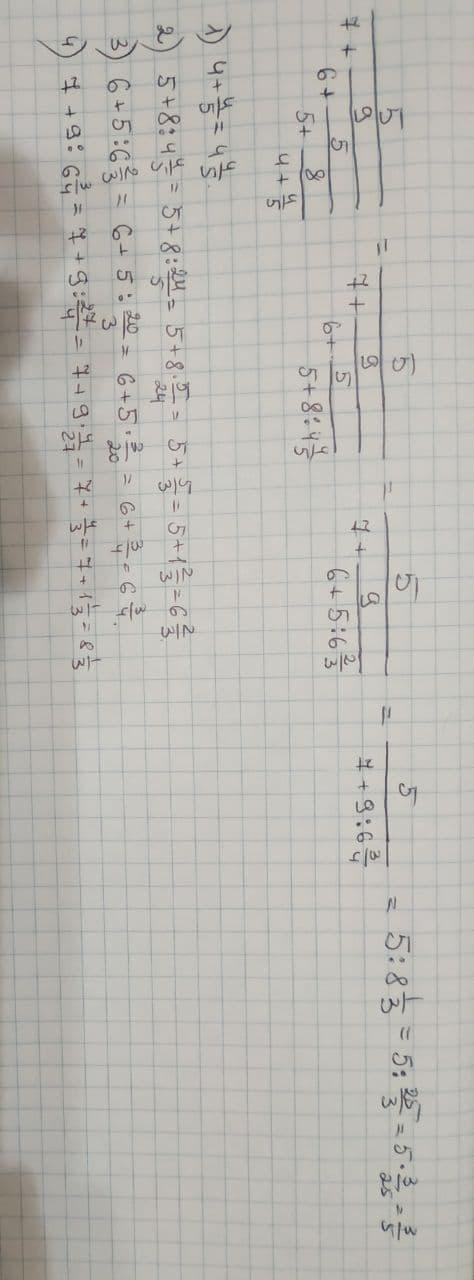 5/(7 + 9/(6 + 5/(5 + 8/(4 + 4/5)))) = 5/(7 + 9/(6 + 5/(5 + 8 : 4 4/5))) = 5/(7 + 9/(6 + 5 : 6 2/3)) = 5/(7 + 9 : 6 3/4) = 5 : 8 1/3 = 5 : 25/3 = 5 · 3/25 = 3/5
1) 4 + 4/5 = 4 4/5.
2) 5 + 8 : 4 4/5 = 5 + 8 : 24/5 = 5 + 8 · 5/24 = 5 + 5/3 = 5 + 1 2/3 = 6 2/3.
3) 6 + 5 : 6 2/3 = 6 + 5 : 20/3 = 6 + 5 · 3/20 = 6 + 3/4 = 6 3/4.
4) 7 + 9 : 6 3/4 = 7 + 9 : 27/4 = 7 + 9 · 4/27 = 7 + 4/3 = 7 + 1 1/3 = 8 1/3